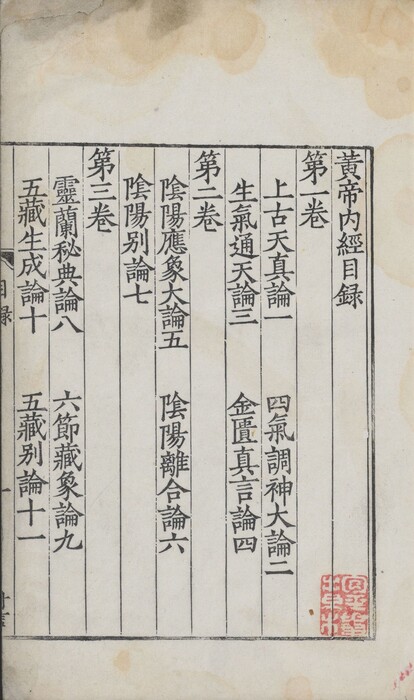 黃帝內經目録
第一卷
上古天真論一 四氣調神大論二
生氣通天論三 金匱真言論四
第二卷
陰陽應象大論五 陰陽離合論六
陰陽别論七
第三卷
靈蘭秘典論八 六節藏象論九
五藏生成論十 五藏别論十一
目録
一